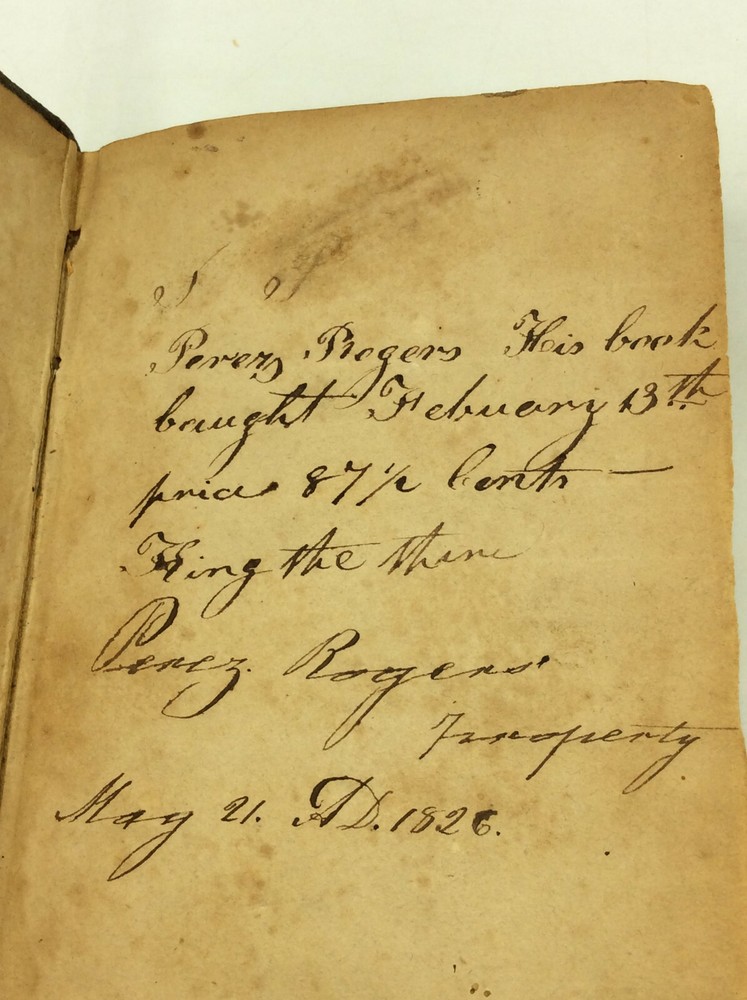 Perez Rogers His book
baught Febuary 13th
price 87 1/2 Cents —
King the
Perez Rogers
Property
May 21. AD. 1826.